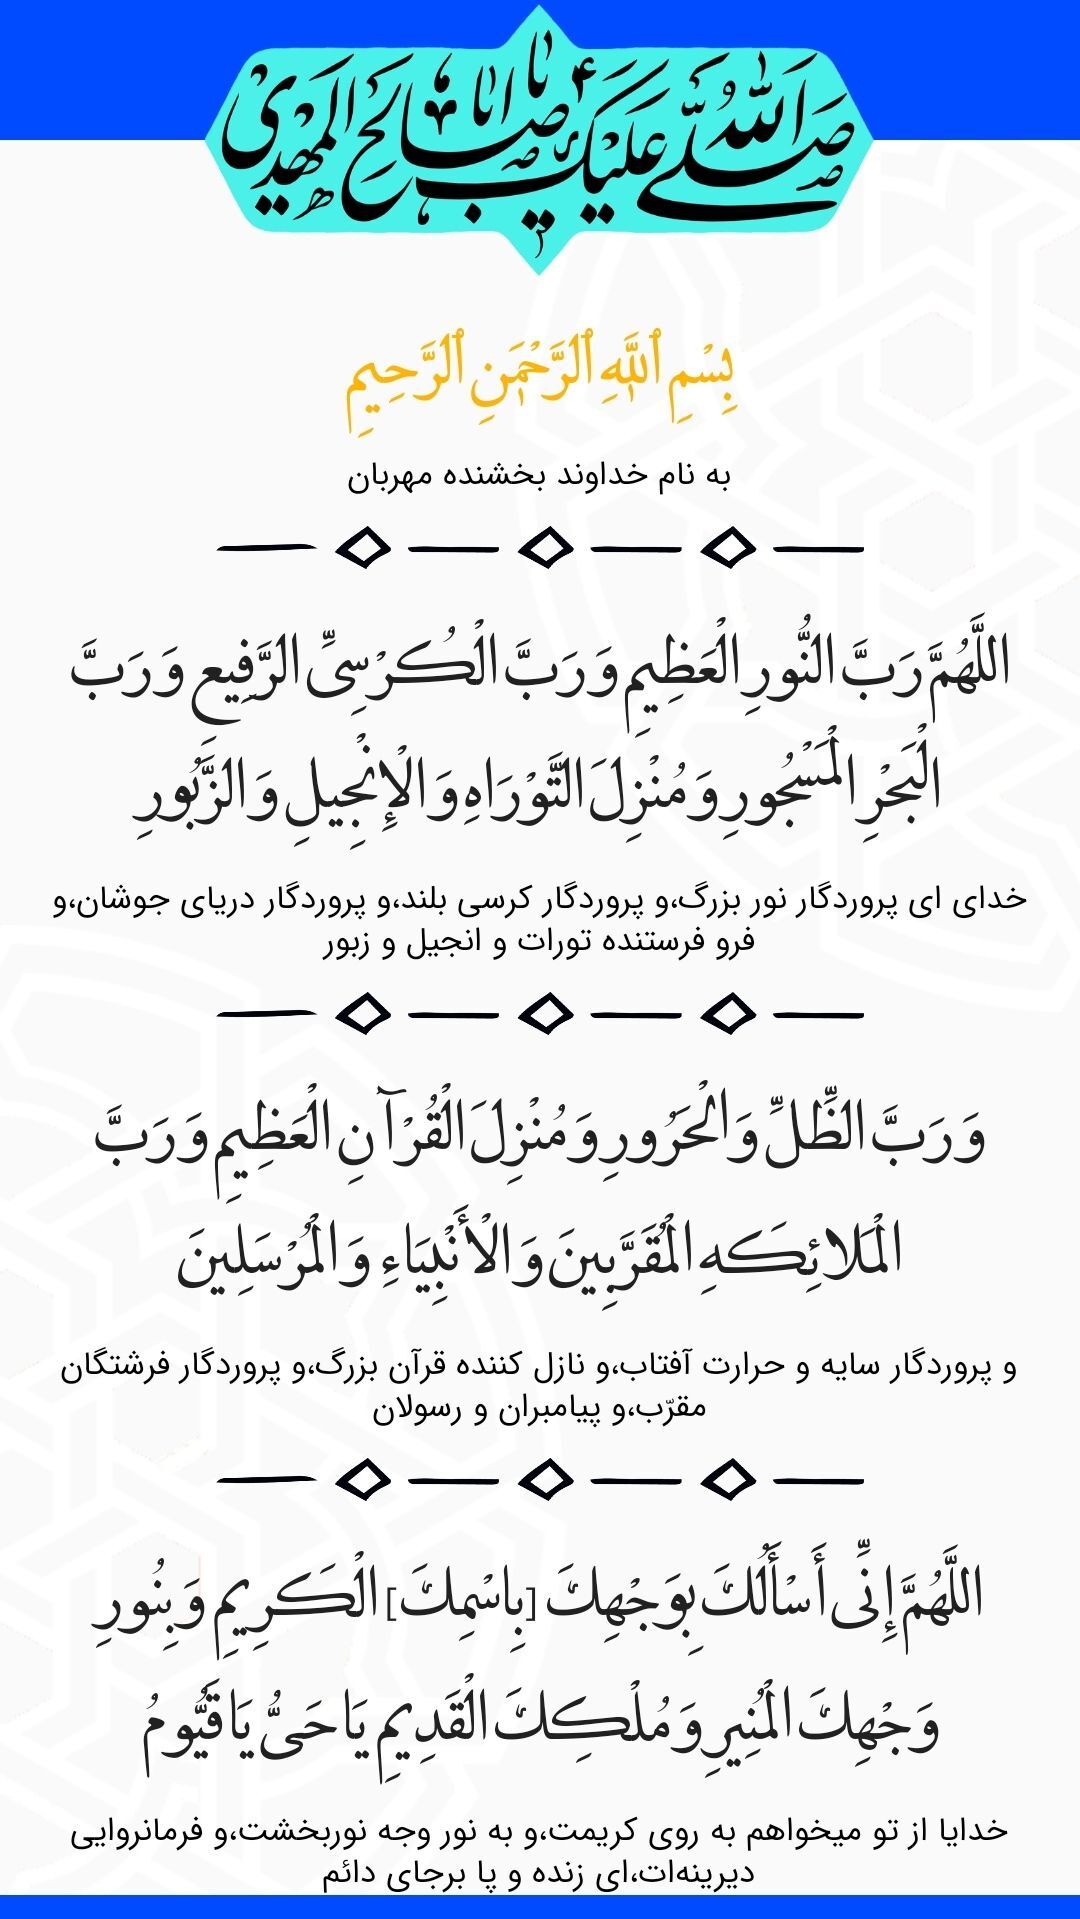 صَلَّی اللهُ عَلَیْکَ یَا اَبَاصَالِحَ الْمَهْدِی
بِسْمِ ٱللَّٰهِ ٱلرَّحْمَٰنِ ٱلرَّحِيمِ
به نام خداوند بخشنده مهربان
اللَّهُمَّ رَبَّ النُّورِ الْعَظِيمِ وَ رَبَّ الْكُرْسِىِّ الرَّفِيعِ وَ رَبَّ
الْبَحْرِ الْمَسْجُورِ وَ مُنْزِلَ التَّوْرَاهِ وَ الْإِنْجِيلِ وَ الزَّبُورِ
خدای ای پروردگار نور بزرگ،و پروردگار کرسی بلند،و پروردگار دریای جوشان،و
فرو فرستنده تورات و انجیل و زبور
وَ رَبَّ الظِّلِّ وَ الْحَرُورِ وَ مُنْزِلَ الْقُرْآنِ الْعَظِيمِ وَ رَبَّ
الْمَلائِكَهِ الْمُقَرَّبِينَ وَ الْأَنْبِيَاءِ وَ الْمُرْسَلِينَ
و پروردگار سایه و حرارت آفتاب،و نازل کننده قرآن بزرگ،و پروردگار فرشتگان
مقرّب،و پیامبران و رسولان
اللَّهُمَّ إِنِّى أَسْأَلُكَ بِوَجْهِكَ [بِاسْمِكَ] الْكَرِيمِ وَ بِنُورِ
وَجْهِكَ الْمُنِيرِ وَ مُلْكِكَ الْقَدِيمِ يَا حَىُّ يَا قَيُّومُ
خدایا از تو میخواهم به روی کریمت،و به نور وجه نوربخشت،و فرمانروایی
دیرینه‌ات،ای زنده و پا برجای دائم